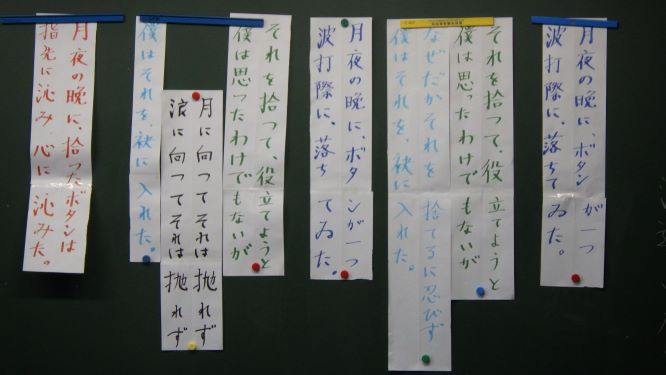 月夜の晩に、ボタンが一つ
波打際に、落ちてゐた。
それを拾つて、役立てようと
僕は思つたわけでもないが
なぜだかそれを捨てるに忍びず
僕はそれを、袂に入れた。
月夜の晩に、ボタンが一つ
波打際に、落ちてゐた。
それを拾つて、役立てようと
僕は思つたわけでもないが
月に向つてそれは抛れず
浪に向つてそれは抛れず
僕はそれを、袂に入れた。
月夜の晩に、拾つたボタンは
指先に沁み、心に沁みた。